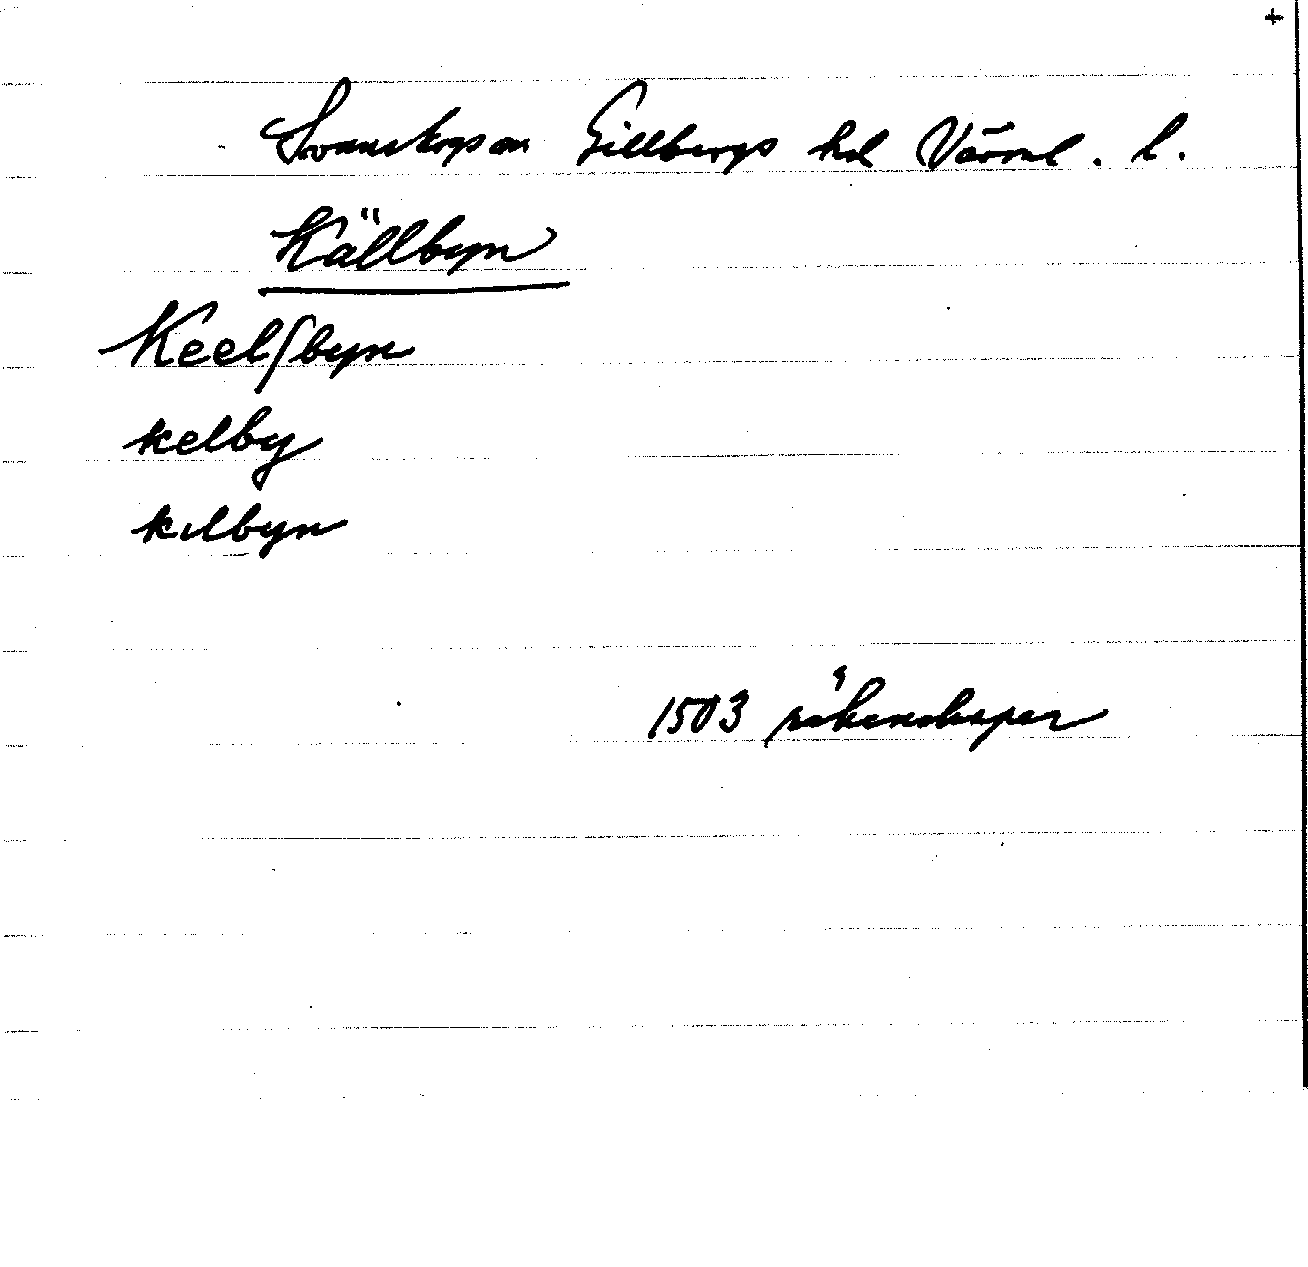 +
Svanskogs sn Gillbergs hd Värml. l.
Källbyn
Keelſbyn
kelby
kılbyn
1503 räkenskaper